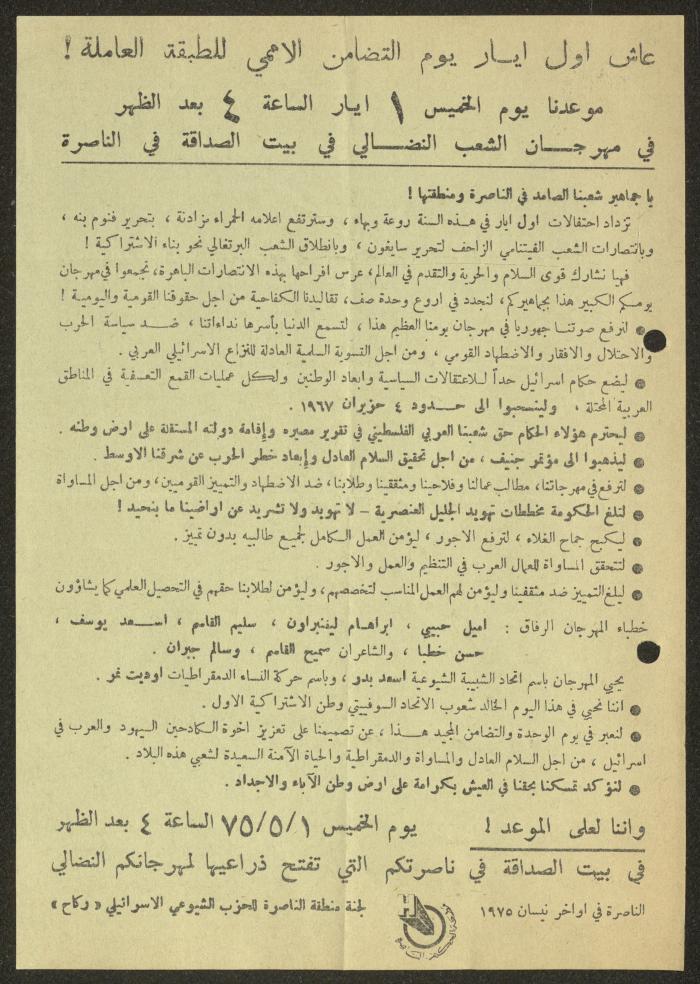 عاش اول ايــار يوم التضامن الاممي للطبقة العاملة !
موعدنا يوم الخميس ١ ايار الساعة ٤ بعد الظهر
في مهرجــان الشعب النضــالي في بيت الصداقة في الناصرة
يا جماهير شعبنا الصامد في الناصرة ومنطقتها !
تزداد احتفالات اول ايار في هذه السنة روعة وبهاء ، وسترتفع اعلامه الحمراء مزدانة ، بتحرير فنوم بنه ،
وبانتصارات الشعب الفيتنامي الزاحف لتحرير سايغون ، وبانطلاق الشعب البرتغالي نحو بناء الاشتراكية !
فهيا نشارك قوى السلام والحرية والتقدم في العالم، عرس افراحها بهذه الانتصارات الباهرة، تجمعوا في مهرجان
يومكم الكبير هذا بجماهيركم، لنجدد في اروع وحدة صف، تقاليدنا الكفاحية من اجل حقوقنا القومية واليومية !
● لنرفع صوتنا جهوريا في مهرجان يومنا العظيم هذا ، لتسمع الدنيا بأسرها نداءاتنا ، ضــد سياسة الحرب
والاحتلال والافقار والاضطهاد القومي ، ومن اجل التسوية السلمية العادلة للنزاع الاسرائيلي العربي .
● ليضع حكام اسرائيل حداً للاعتقالات السياسية وابعاد الوطنين ولكل عمليات القمع التعسفية في المناطق
العربية المحتلة ، ولينسحبوا الى حــدود ٤ حزيران ١٩٦٧ .
● ليحترم هؤلاء الحكام حق شعبنا العربي الفلسطيني في تقرير مصيره وإقامة دولته المستقلة على ارض وطنه .
● ليذهبوا الى مؤتمر جنيف ، من اجل تحقيق السلام العادل وإبعاد خطر الحرب عن شرقنا الاوسط .
● لنرفع في مهرجاننا، مطالب عمالنا وفلاحينا ومثقفينا وطلابنا، ضد الاضطهاد والتمييز القوميين، ومن اجل المساواة
● لتلغ الحكومة مخططات تهويد الجليل العنصرية – لا تهويد ولا تشريد عن اراضينا ما بنحيد !
● ليكبح جماح الغلاء ، لترفع الاجور ، ليؤمن العمل الكامل لجميع طالبيه بدون تمييز .
● لتتحقق المساواة للعمال العرب في التنظيم والعمل والاجور .
● ليلغ التمييز ضد مثقفينا وليؤمن لهم العمل المناسب لتخصصهم، وليؤمن لطلابنا حقهم في التحصيل العلمي كما يشاؤون
خطباء المهرجان الرفاق : اميل حبيبي ، ابراهـام ليفنبراون ، سليم القاسم ، اسـعد يوسف ،
حسن خطبا ، والشاعران سميح القاسم ، وسالم جبران .
يحيي المهرجان باسم اتحاد الشبيبة الشيوعية اسعد بدو ، وباسم حركة النساء الدمقراطيات اوديت نمو .
● اننا نحيي في هذا اليوم الخالد شعوب الاتحاد السوفييتي وطن الاشتراكية الاول .
● لنعبر في يوم الوحدة والتضامن المجيد هــذا ، عن تصميمنا على تعزيز اخوة الكادحين اليهود والعرب في
اسرائيل ، من اجل السلام العادل والمساواة والدمقراطية والحياة الآمنة السعيدة لشعبي هذه البلاد .
● لنؤكد تمسكنا بحقنا في العيش بكرامة على ارض وطن الآباء والاجداد .
واننا لعلى الموعد ! يوم الخميس ٧٥/٥/١ الساعة ٤ بعد الظهر
في بيت الصداقة في ناصرتكم التي تفتح ذراعيها لمهرجانكم النضالي
الناصرة في اواخر نيسان ١٩٧٥ لجنة منطقة الناصرة للحزب الشيوعي الاسرائيلي « ركاح »